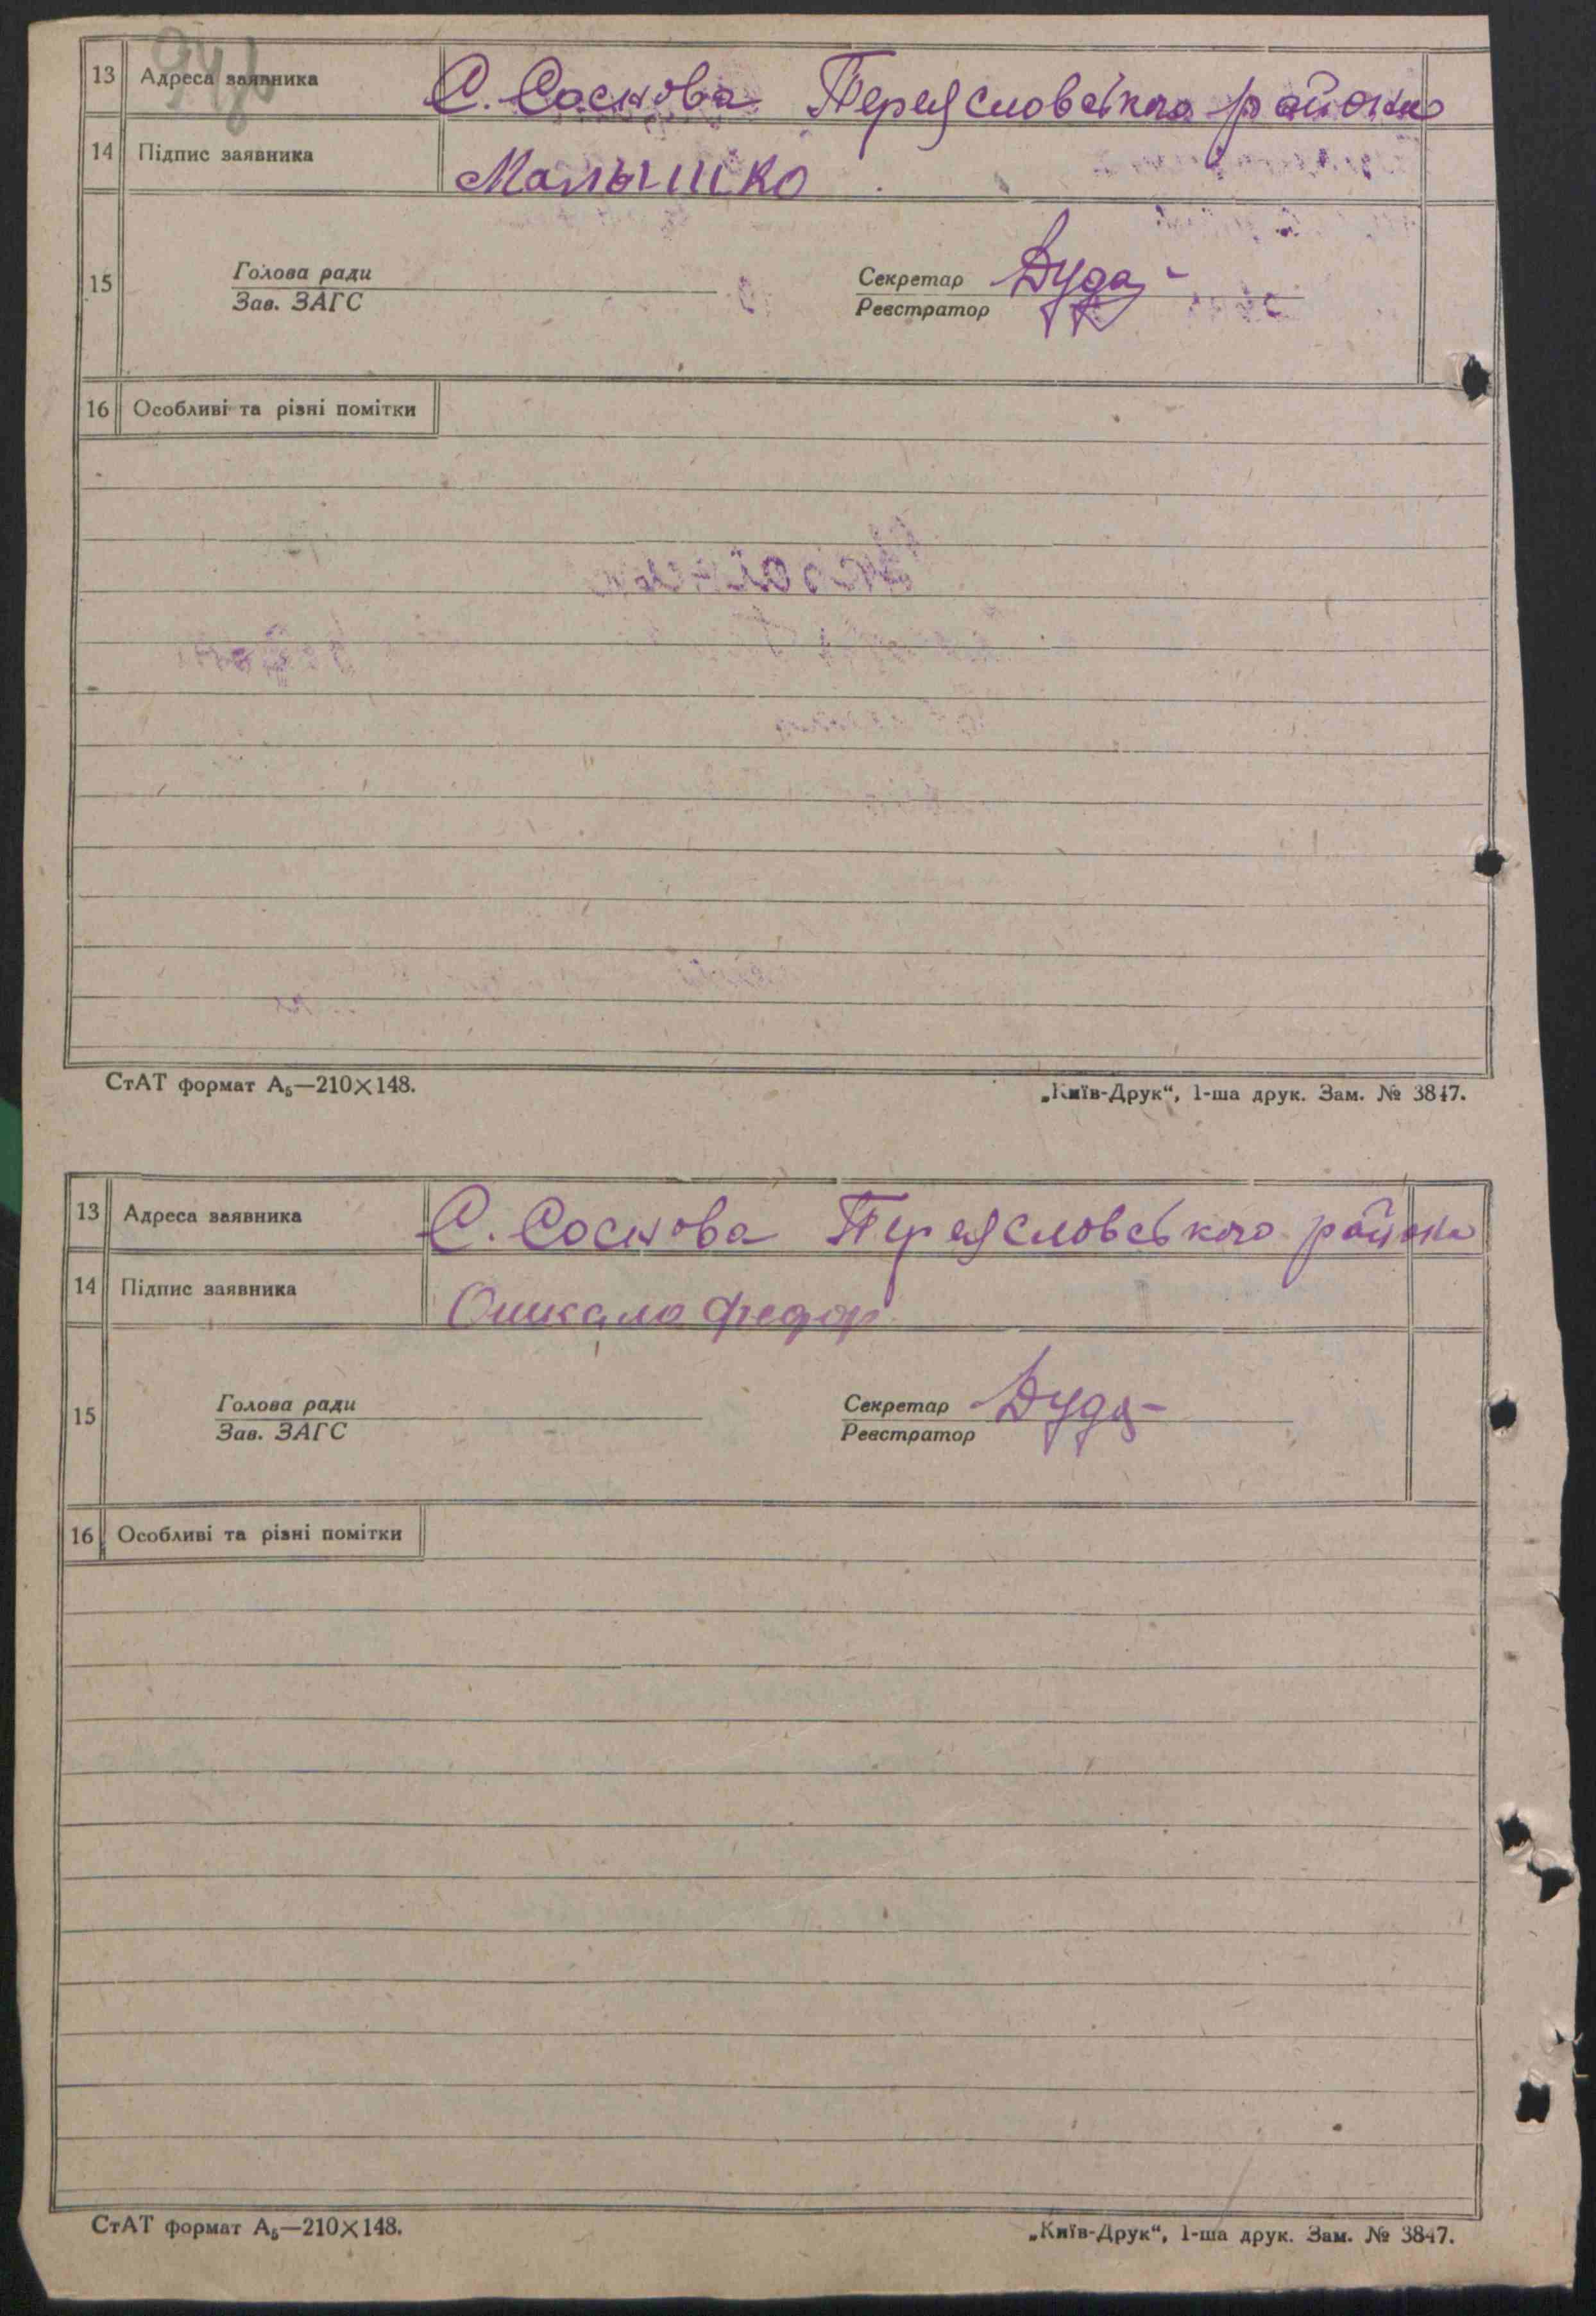 13 Адреса заявника С. Соснова Переясловського району
14 Підпис заявника Малышко
15 Голова ради Секретар Дуда
Зав. ЗАГС Реєстратор
16 Особливі та різні помітки
СтАТ формат А₅—210×148. „Київ-Друк“, 1-ша друк. Зам. № 3847.
13 Адреса заявника С. Соснова Переясловського району
14 Підпис заявника Ошкало Федор
15 Голова ради Секретар Дуда
Зав. ЗАГС Реєстратор
16 Особливі та різні помітки
СтАТ формат А₅—210×148. „Київ-Друк“, 1-ша друк. Зам. № 3847.